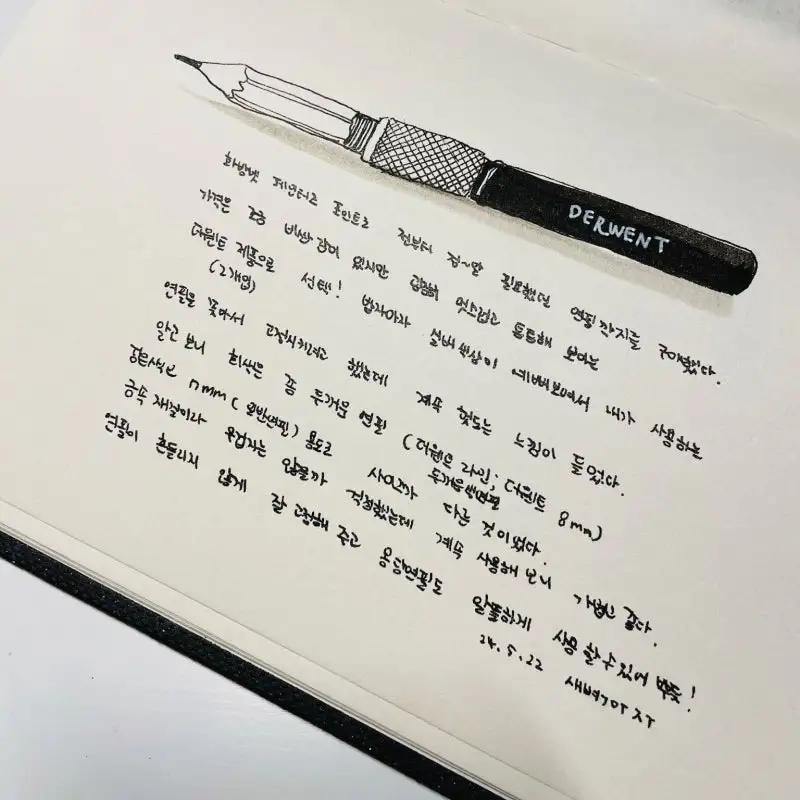 DERWENT
화방넷 페인터즈 포인트로 전부터 점~말 필요했던 연필깍지를 구매했다.
가격은 조금 비싼 감이 있지만 멋스럽고 튼튼해 보이는
더웬트 제품으로 선택! 받자마자 실버색상이 예뻐보여서 내가 사용하는
(2개입)
연필을 꽂아서 고정시키려고 했는데 계속 헛도는 느낌이 들었다.
알고 보니 회색은 좀 두꺼운 연필 (더웬트 라인; 더웬트 8mm)
두꺼운색연필
검은색은 7mm (일반연필) 용도로 사이즈가 다른 것이었다.
금속 재질이라 무겁지는 않을까 걱정했는데 계속 사용해 보니 가볍고 좋다.
연필이 흔들리지 않게 잘 고정해 주고 몽당연필도 알뜰하게 사용할 수 있어 뿌듯!
24.5.22 새벽